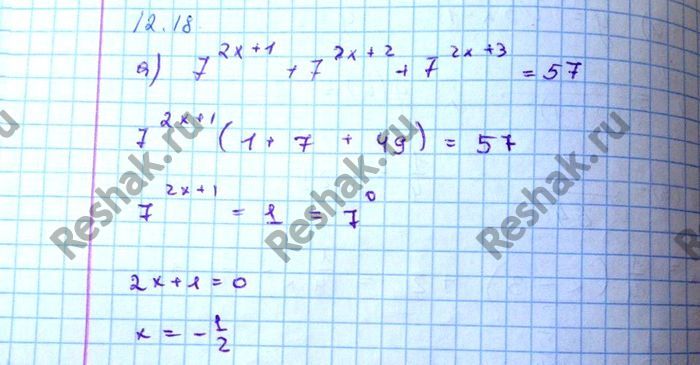 12.18
а) 7^{2x+1} + 7^{2x+2} + 7^{2x+3} = 57
7^{2x+1} (1 + 7 + 49) = 57
7^{2x+1} = 1 = 7^0
2x+1=0
x = -1/2
Reshak.ru
Reshak.ru
Reshak.ru
Reshak.ru